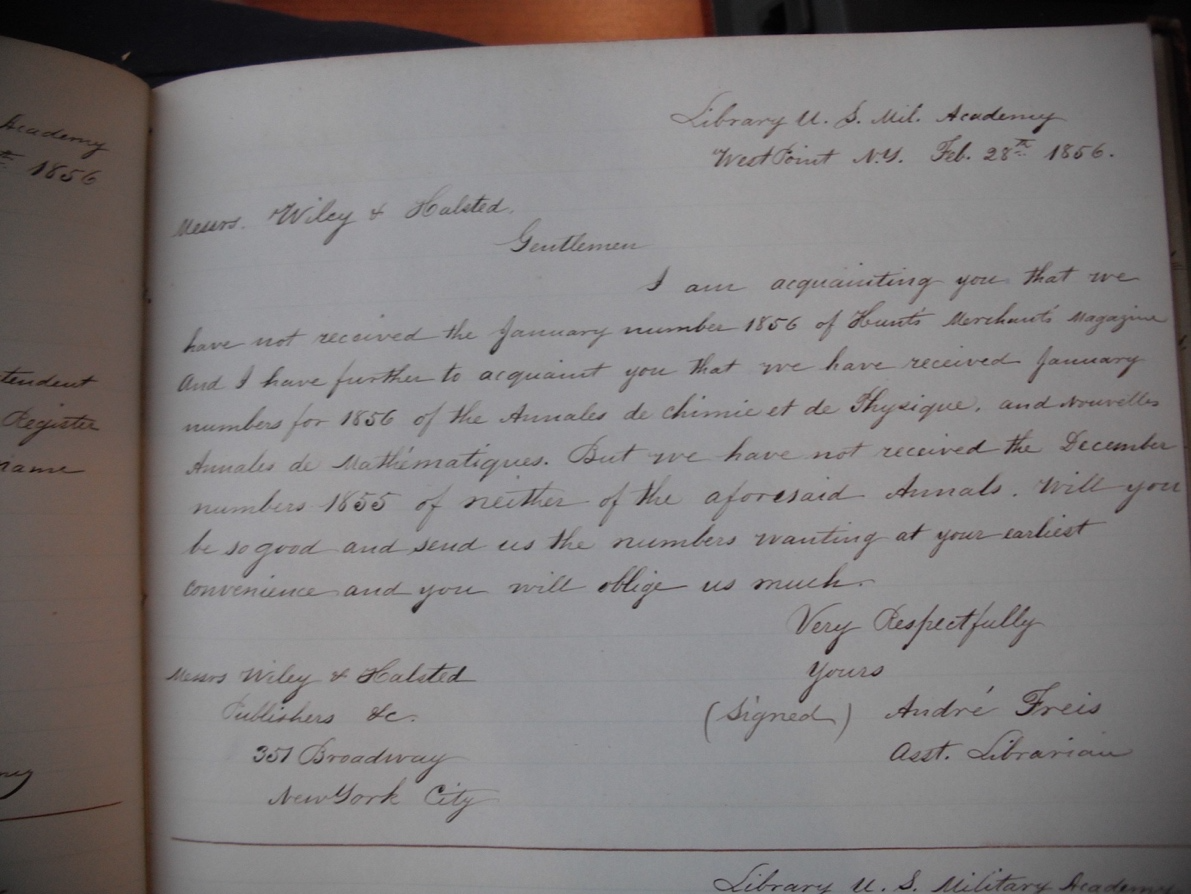 Academy
1856
tendent
Register
name
Library U. S. Mil. Academy
West Point N.Y. Feb. 28th 1856.
Messrs. Wiley & Halsted.
Gentlemen
I am acquainting you that we
have not received the January number 1856 of Hunt's Merchant's Magazine
And I have further to acquaint you that we have received January
numbers for 1856 of the Annales de chimie et de Physique, and Nouvelles
Annales de Mathématiques. But we have not received the December
numbers 1855 of neither of the aforesaid Annals. Will you
be so good and send us the numbers wanting at your earliest
convenience and you will oblige us much.
Very Respectfully
Yours
(Signed) André Freis
Asst. Librarian
Messrs Wiley & Halsted
Publishers &c.
351 Broadway
New York City
Library U. S. Military Academy